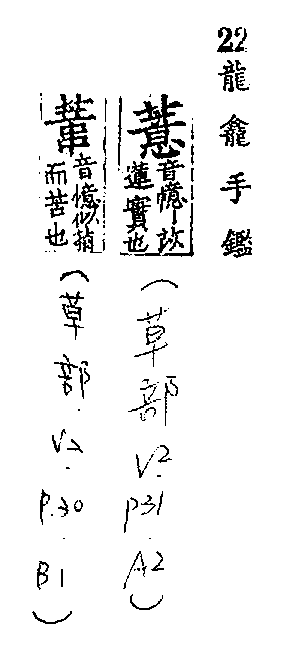 22龍龕手鑑
薏
音憶
蓮實也
(草部V2.P31.A2)
音憶似
而苦也
(草部.V2.P.30.B1)